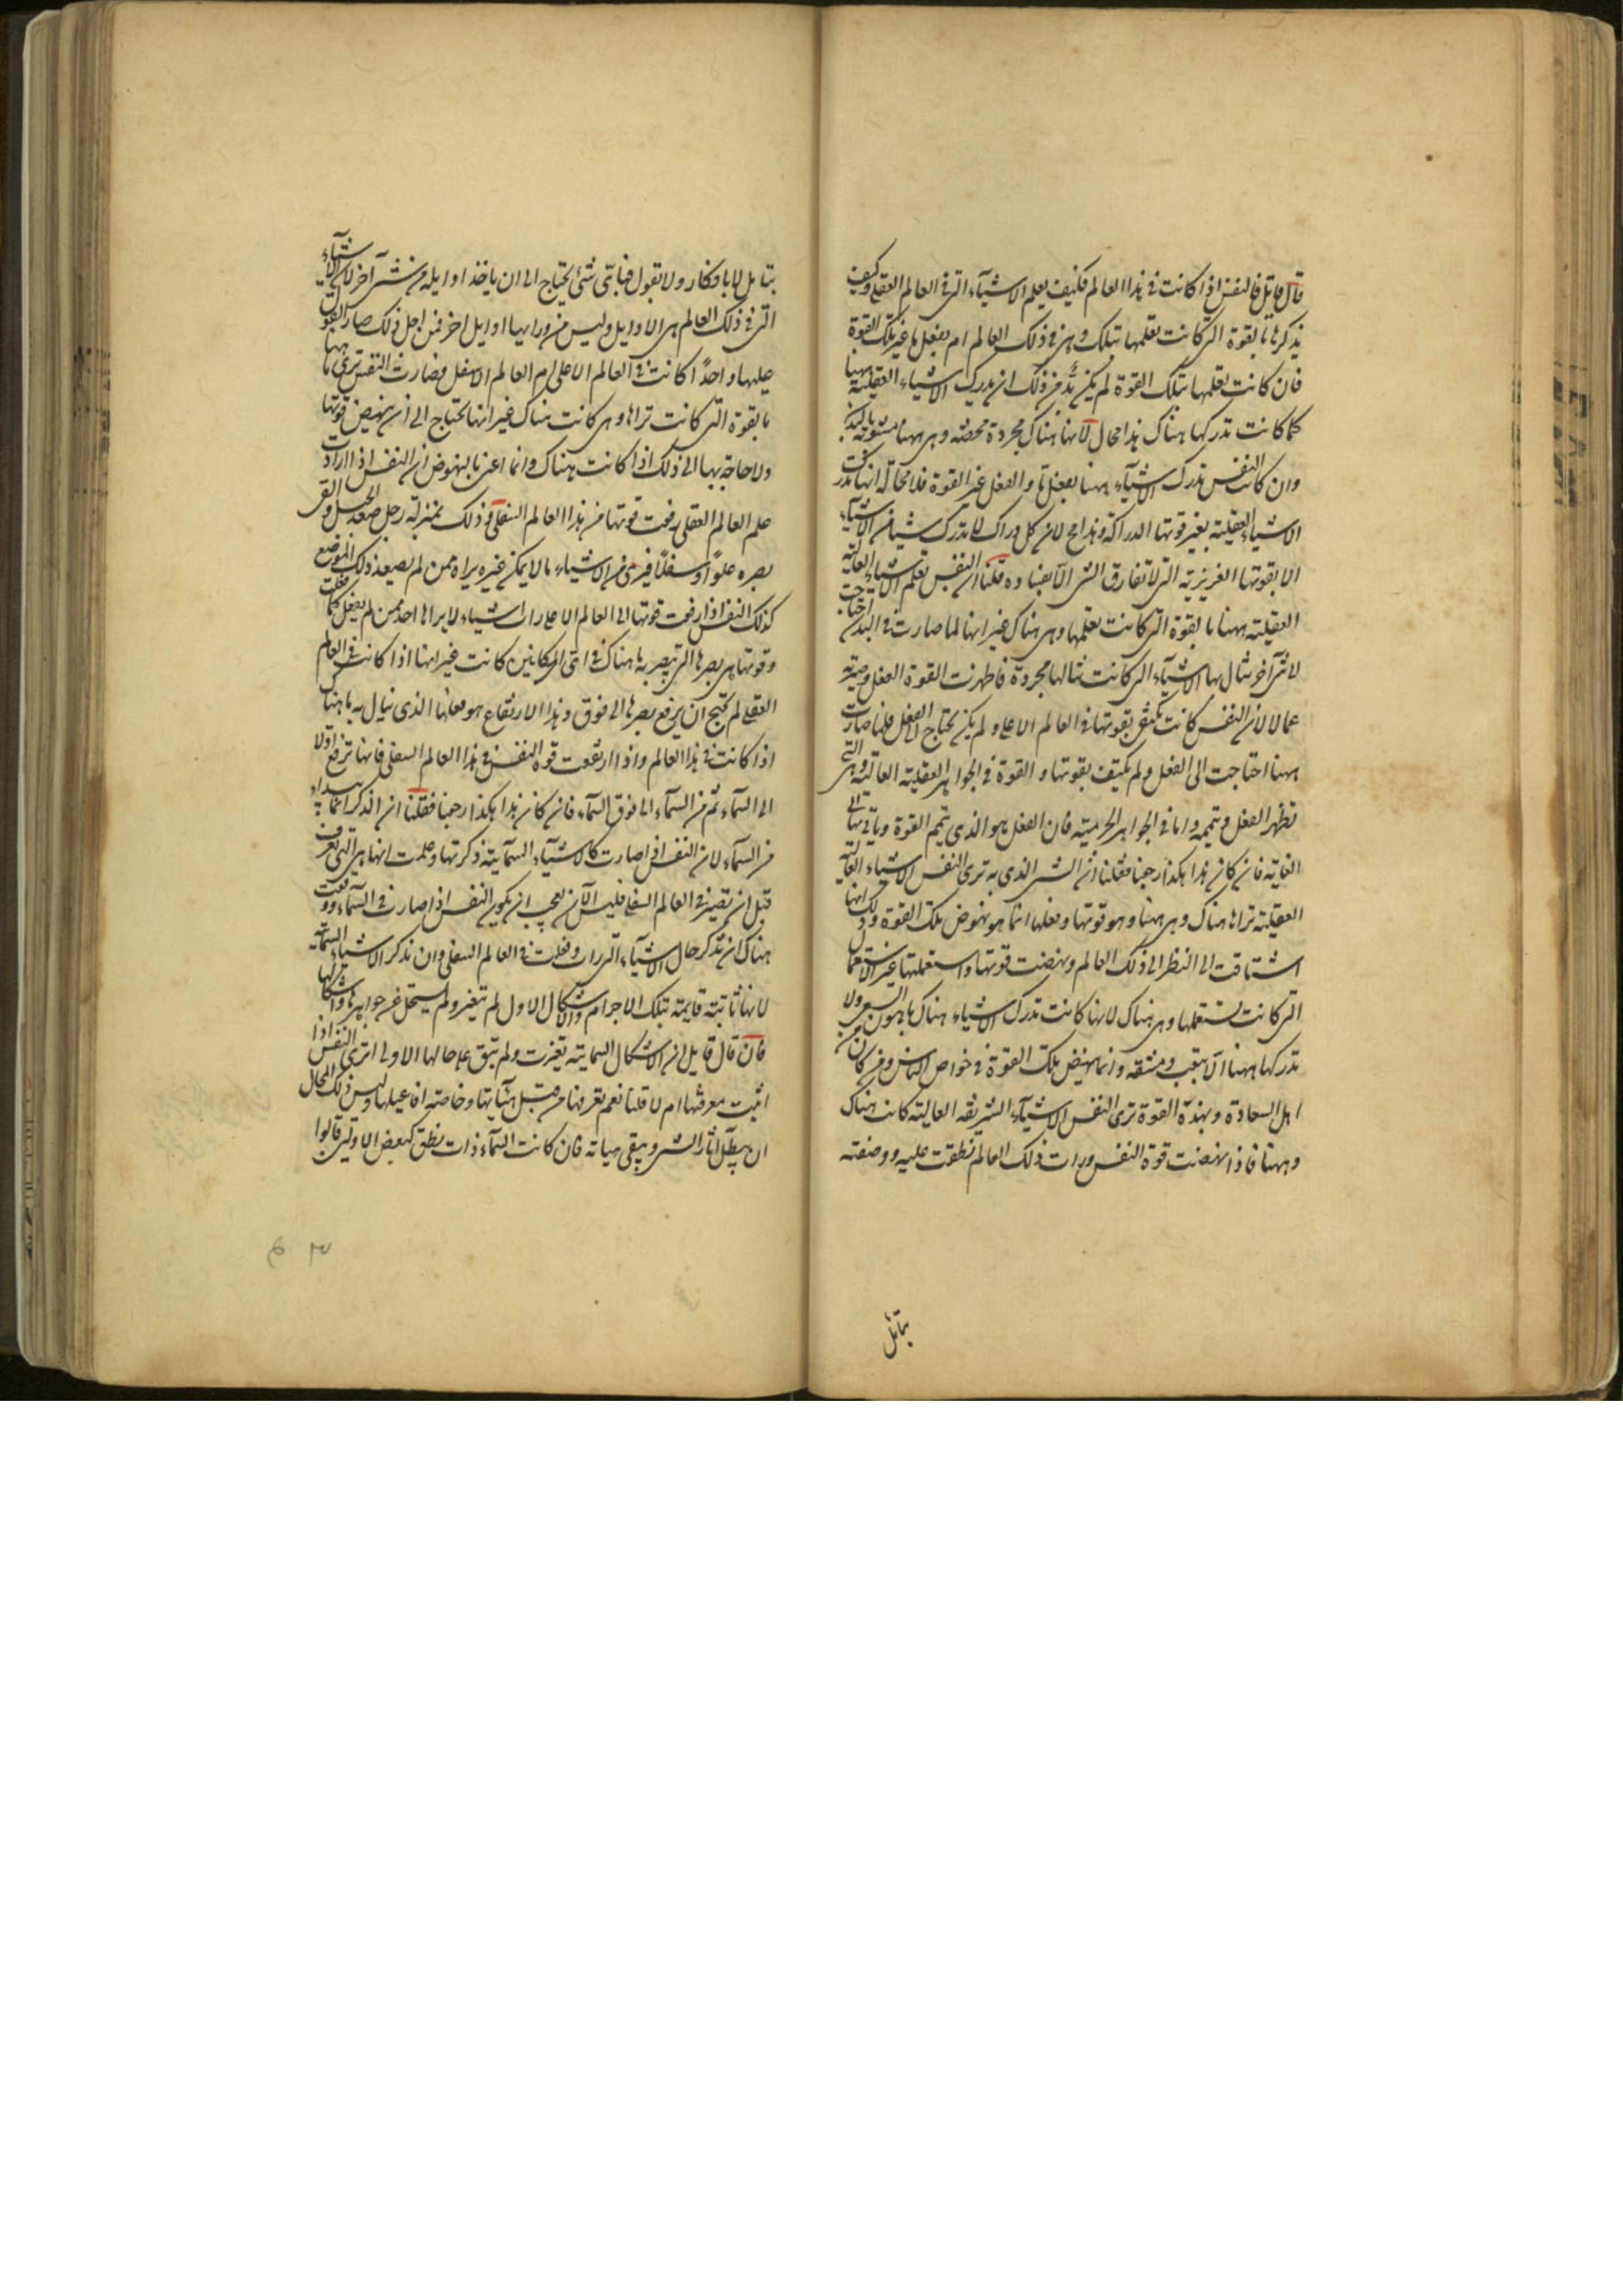 قال قايل فالنفس اذا كانت فى هذا العالم فكيف يعلم الاشيآء التى فى العالم العقلى وكيف
يذكرها بالقوة التى كانت تعلمها بتلك وهى فى ذلك العالم ام بفعل ما غير تلك القوة
فان كانت تعلمها بتلك القوة لم يكن بُدّ من ذلك ان يدرك الاشياء العقلية ههنا
كما كانت تدركها هناك هذا محال لانها هناك مجردة محضة وهى ههنا مشوبة بالبدن
وان كانت النفس تدرك الاشيآء ههنا بفعل ما والفعل غير القوة فلا محالة انها تدرك
الاشياء العقلية بغير قوتها الدراكة وهذا مح لان كل دراك لا يدرك شيئا من الاشيآء
الا بقوتها الغريزية التى لا تفارق الشى الا بفساده قلنا ان النفس تعلم الاشياء العالية
العقلية ههنا بالقوة التى كانت تعلمها وهى هناك غير انها لما صارت فى البدن احتاجت
لا شى آخر تنال بها الاشيآء التى كانت تنالها مجردة فاظهرت القوة الفعل وصيرته
عمالا لان النفس كانت تكتفى بقوتها فى العالم الاعلى ولم يكن يحتاج الى الفعل فلما صارت
ههنا احتاجت الى الفعل ولم يكتف بقوتها والقوة فى الجواهر العقلية العالية وهى التى
تظهر الفعل وتتممه واما فى الجواهر الجرمية فان الفعل هو الذى يتمم القوة وياتى بها الى
الغاية فان كان هذا هكذا رجعنا فقلنا ان الشى الذى به ترى النفس الاشياء العالية
العقلية تراها هناك وهى ههنا وهو قوتها وفعلها انما هو نهوض تلك القوة وذلك انها
اشتاقت الى النظر الى ذلك العالم ونهضت قوتها واستعملتها غير الاستعمال
التى كانت تستعملها وهى هناك لانها كانت تدرك الاشياء هناك باهون السعى ولا
تدركها ههنا الا بتعب ومشقة وانما ينهض تلك القوة فى خواص الناس ومن كان من
اهل السعادة وبهذه القوة ترى النفس الاشيآء الشريفة العالية كانت هناك
وههنا فاذا نهضت قوة النفس ورات ذلك العالم نطقت عليه ووصفته
بتامل
بتامل لا بافكار ولا بقول فباتّى شئ يحتاج الى ان ياخذ اوايله من شئ آخر لان الاشيآء
التى فى ذلك العالم هى الاوايل وليس من ورايها اوايل اخر فمن اجل ذلك صار القول
عليها واحدًا كانت فى العالم الاعلى ام العالم الاسفل فصارت النفس ترى ما ههنا
بالقوة التى كانت تراها وهى كانت هناك غير انها تحتاج الى ان ينهض قوتها
ولا حاجة بها الى ذلك اذا كانت هناك وانما اعنى بالنهوض ان النفس اذا ارادت
علم العالم العقلى رفعت قوتها من هذا العالم السفلى وذلك بمنزلة رجل صعد الجبل والقى
بصره علوًا وسفلًا فيرى من الاشياء ما لا يمكن غيره يراه ممن لم يصعد ذلك الموضع
كذلك النفس اذا رفعت قوتها الى العالم الاعلى رات اشياء لا يراها احد ممن لم يفعل كما فعلت
وقوتها هى بصرها التى تبصر به ما هناك فى اتى المكانين كانت غير انها اذا كانت فى العالم
العقلى لم تحتج ان يرفع بصرها الى فوق وهذا الارتفاع هو فعلها الذى ينال به ما هناك
اذا كانت فى هذا العالم واذا ارتفعت قوة النفس فى هذا العالم السفلى فانها ترتفع اولا
الى السمآء ثم من السمآء الى فوق السمآء فان كان هذا هكذا رجعنا فقلنا ان الذكر انما يبدا
من السمآء لان النفس اذا صارت كالاشيآء السمآيية ذكرتها وعلمت انها هى التى تعرف
قبل ان تصير فى العالم السفلى فليس الآن بعجب ان يكون النفس اذا صارت فى السمآء ووقعت
هناك ان تذكر حال الاشيآء التى رات وفعلت فى العالم السفلى وان تذكر الاشياء السمآية
لانها ثابتة قايمة بتلك الاجرام والاشكال الاول لم تتغير ولم يستحل عن جواهرها واشكالها
فان قال قايل ان الاشكال السمايية تغيرت ولم تبق على حالها الاولى اترى النفس اذا
اثبت معرفتها ام لا قلنا نعم تعرفها من قبل هيئاتها وخاصة افاعيلها وليس ذلك بمحال
ان يبطل اثار الشى ويبقى هياته فان كانت السمآء ذات نطق كبعض الاولين قالوا